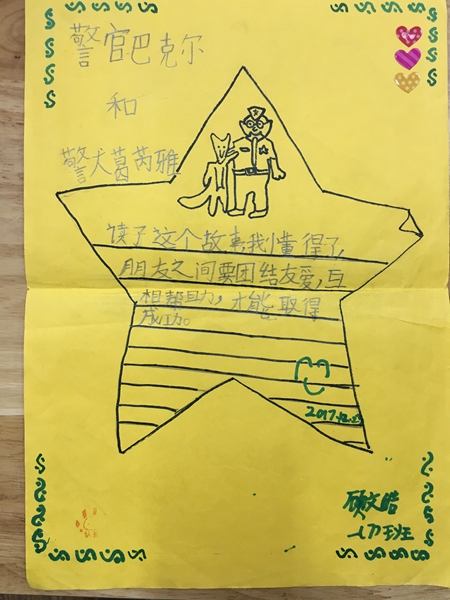 警官巴克尔
和
警犬葛芮雅
读了这个故事我懂得了,
朋友之间要团结友爱,互
相帮助,才能取得
成功。
2017.12.23
顾文皓
一(7)班